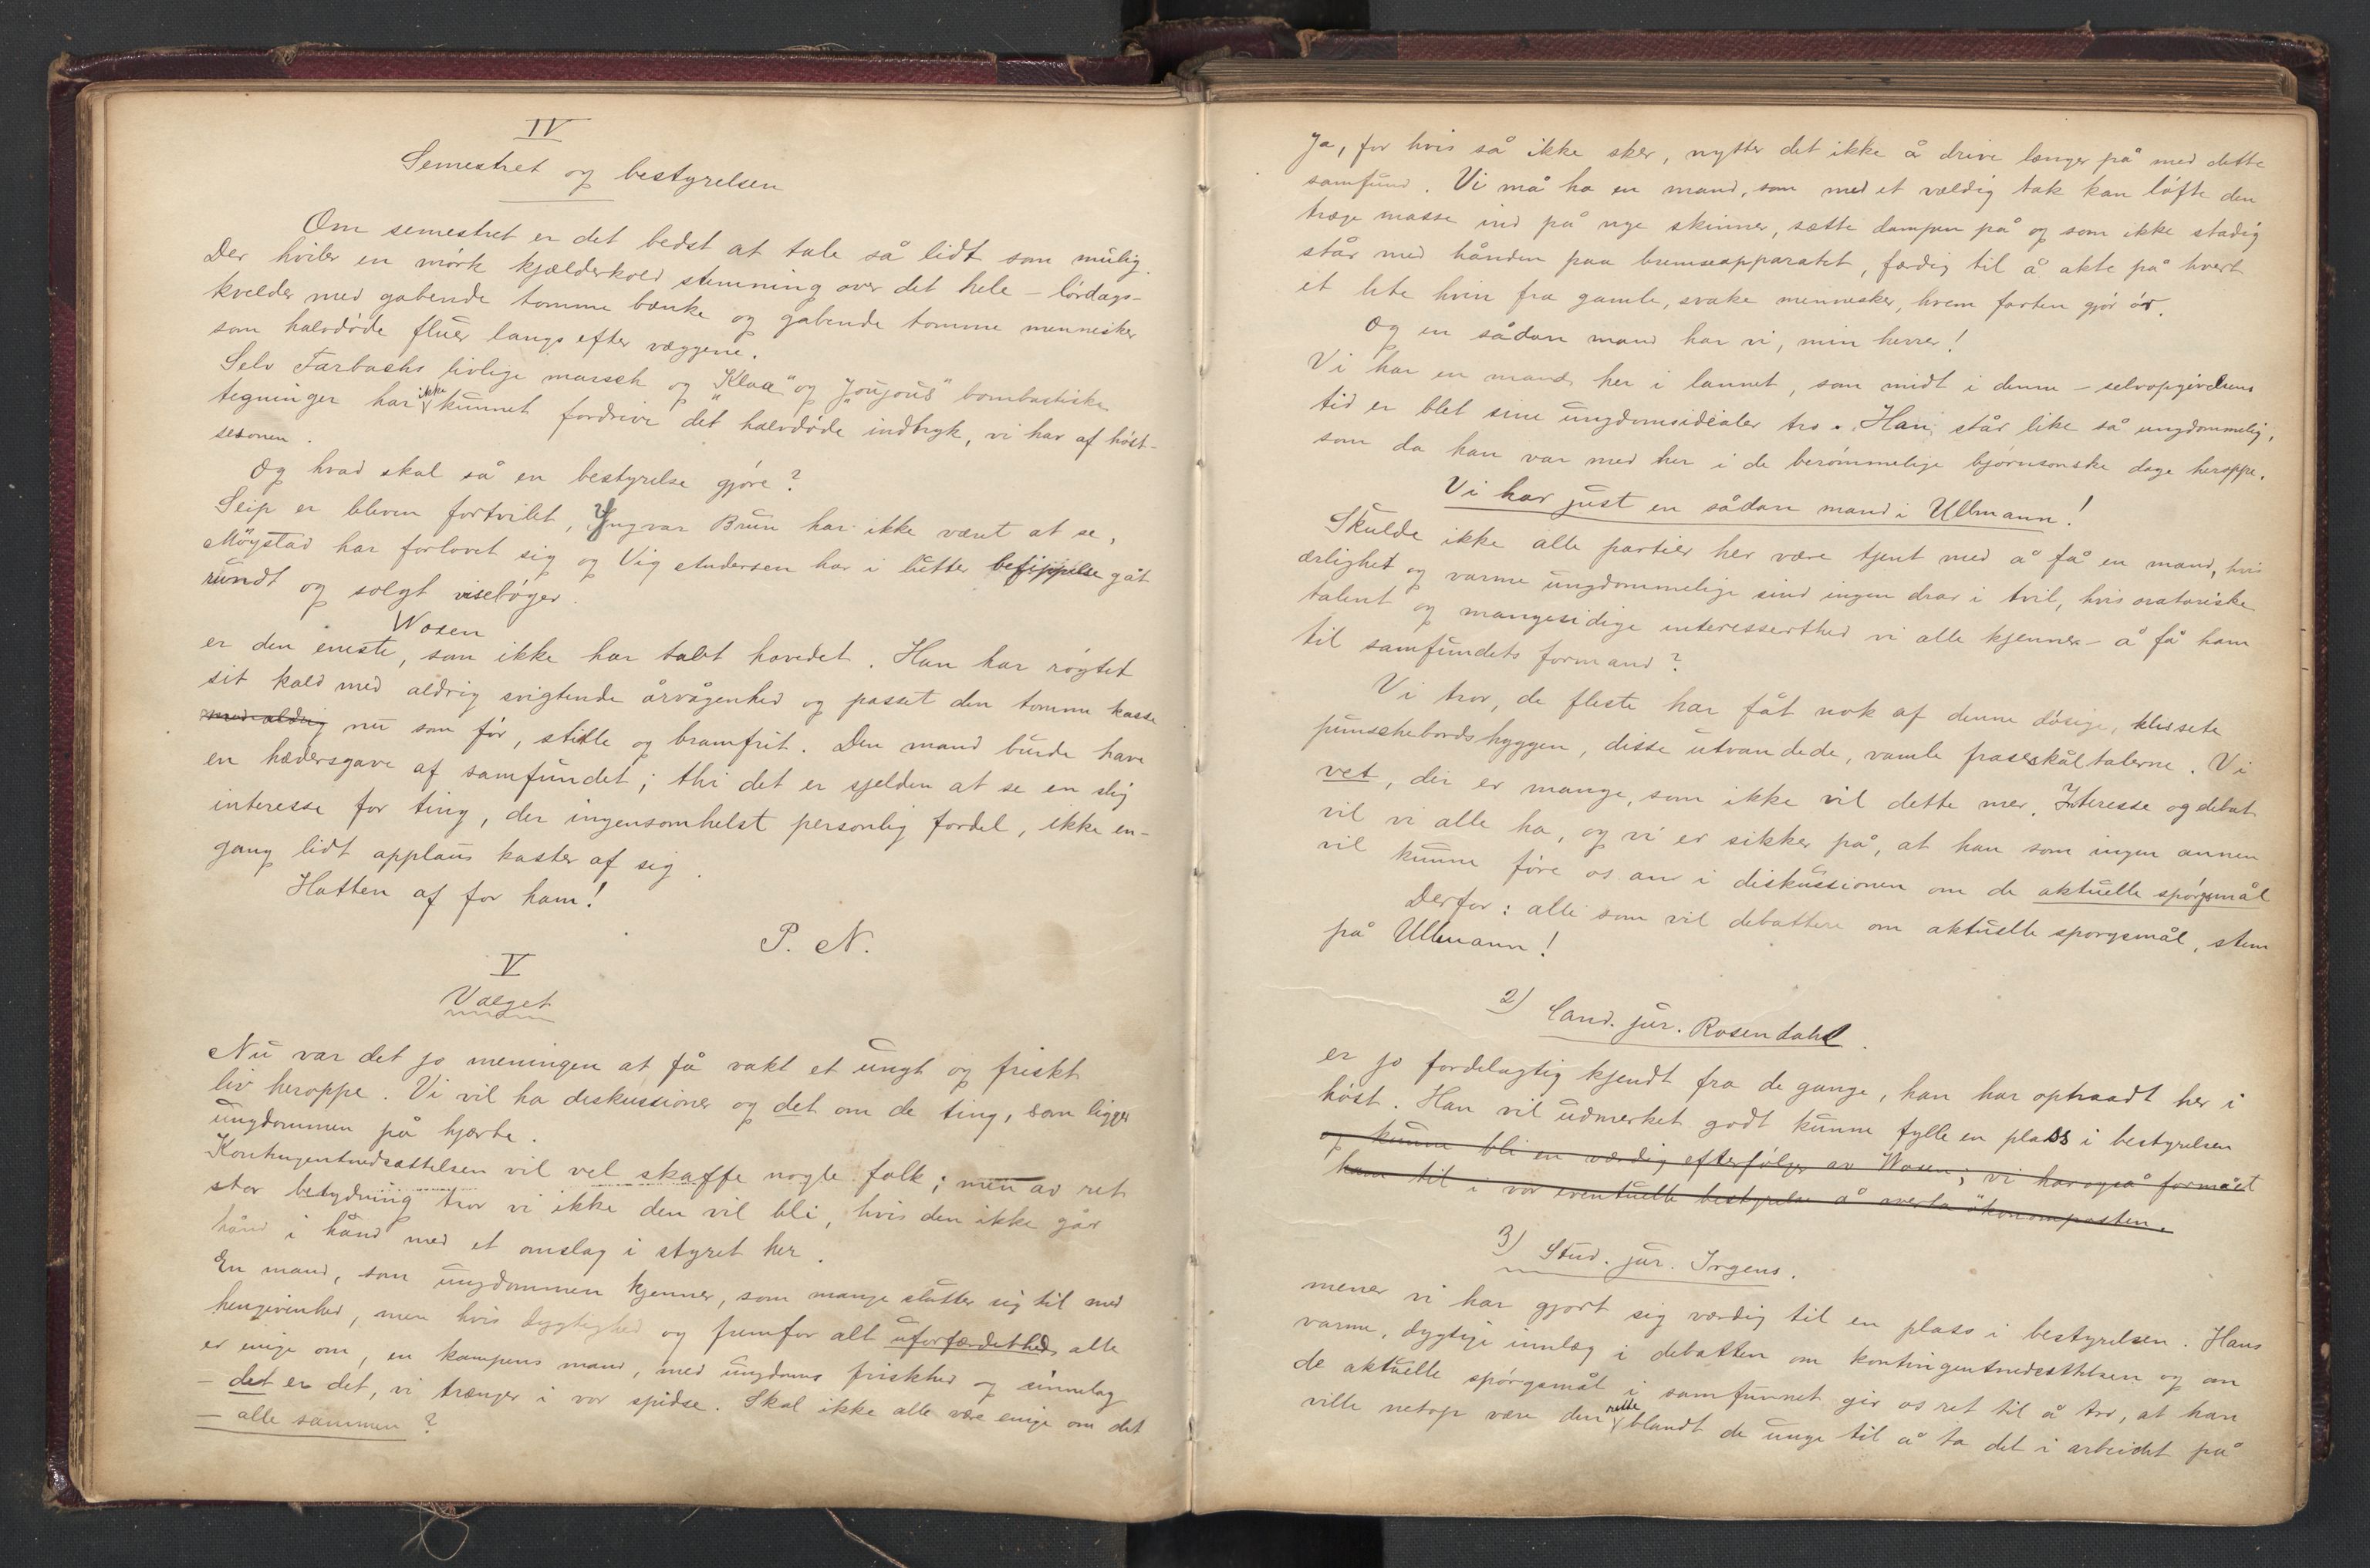 IV
Semestret og bestyrelsen
Om semestret er det bedst at tale så lidt som mulig.
Der hviler en mørk kjælderkold stemning over det hele – lørdags-
kvelder med gabende tomme bænke og gabende tomme mennesker
som halvdøde fluer langs efter væggene.
Selv Farbachs livlige marsch og "Klaa" og "Joujous" bombastiske
tegninger har ikke kunnet fordrive det halvdøde indtryk, vi har af høst-
sesonen.
Og hvad skal så en bestyrelse gjøre?
Seip er bleven fortvilet, Yngvar Brun har ikke været at se,
Møystad har forlovet sig og Vig studersen har i lutter befippelse gåt
rundt og solgt visebøger.
Wosen
er den eneste, som ikke har tabt hovedet. Han har røgtet
sit kald med aldrig svigtende årvågenhed og passet den tomme kasse
med aldrig nu som før, stille og bramfrit. Den mand burde have
en hædersgave af samfundet; thi det er sjelden at se en slig
interesse for ting, der ingensomhelst personlig fordel, ikke en-
gang lidt applaus kaster af sig.
Hatten af for ham!
P. N.
V
Valget
Nu var det jo meningen at få vakt et ungt og friskt
liv heroppe. Vi vil ha diskussioner og det om de ting, som ligger
ungdommen på hjærte.
Kontingentnedsættelsen vil vel skaffe nogle folk; men av ret
stor betydning tror vi ikke den vil bli, hvis den ikke går
hånd i hånd med et omslag i styret her.
En mand, som ungdommen kjenner, som mange slutter sig til med
hengivenhed, men hvis dygtighed og fremfor alt uforfærdethed alle
er enige om, en kampens mand, med ungdoms friskhed og sinnelag
– det er det, vi trænger i vor spidse. Skal ikke alle være enige om det
– alle sammen?
Ja, for hvis så ikke sker, nytter det ikke å drive længer på med dette
samfund. Vi må ha en mand, som med et vældig tak kan løfte den
træge masse ind på nye skinner, sætte dampen på og som ikke stadig
står med hånden paa bremseapparatet, færdig til å akte på hvert
et lite hvin fra gamle, svake mennesker, hvem farten gjør ør.
Og en sådan mand har vi, min herrer!
Vi har en mand her i lannet, som midt i denne – selvopgivelsens
tid er blet sine ungdomsidealer tro. Han står like så ungdommelig,
som da han var med her i de berømmelige bjørnsonske dage heroppe.
Vi har just en sådan mand i Ullmann!
Skulde ikke alle partier her være tjent med å få en mand, hvis
ærlighet og varme ungdommelige sind ingen drar i tvil, hvis oratoriske
talent og mangesidige interesserthed vi alle kjenner – å få ham
til samfundets formand?
Vi tror, de fleste har fåt nok af denne døsige, klissete
punschebordshyggen, disse utvandede, vamle fraseskåltalerne. Vi
vet, der er mange, som ikke vil dette mer. Interesse og debat
vil vi alle ha, og vi er sikker på, at han som ingen annen
vil kunne føre os an i diskussionen om de aktuelle spørgsmål
Derfor: alle som vil debattere om aktuelle sporgsmål, stem
på Ullmann!
2) Cand. jur. Rosendahl.
er jo fordelagtig kjendt fra de gange, han har optraadt her i
høst. Han vil udmerket godt kunne fylle en plass i bestyrelsen
og kunne bli en værdig efterfølger av Wosen; vi har også formået
ham til i vår eventuelle bestyrelse å overta økonomposten.
3) Stud. jur. Irgens.
mener vi har gjort sig værdig til en plass i bestyrelsen. Hans
varme, dygtige innlæg i debatten om kontingentnedsettelsen og om
de aktuelle spørgsmål i samfunnet gir os ret til å tro, at han
ville netop være den rette blandt de unge til å ta del i arbeidet på